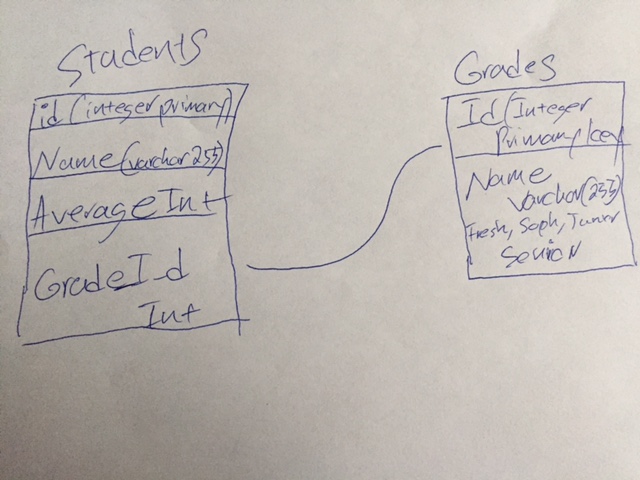 Students
id (integer primary)
Name (varchar 255)
Average Int
GradeId
Int
Grades
Id (Integer
Primary key
Name
Varchar (255)
Fresh, Soph, Junior
Senior